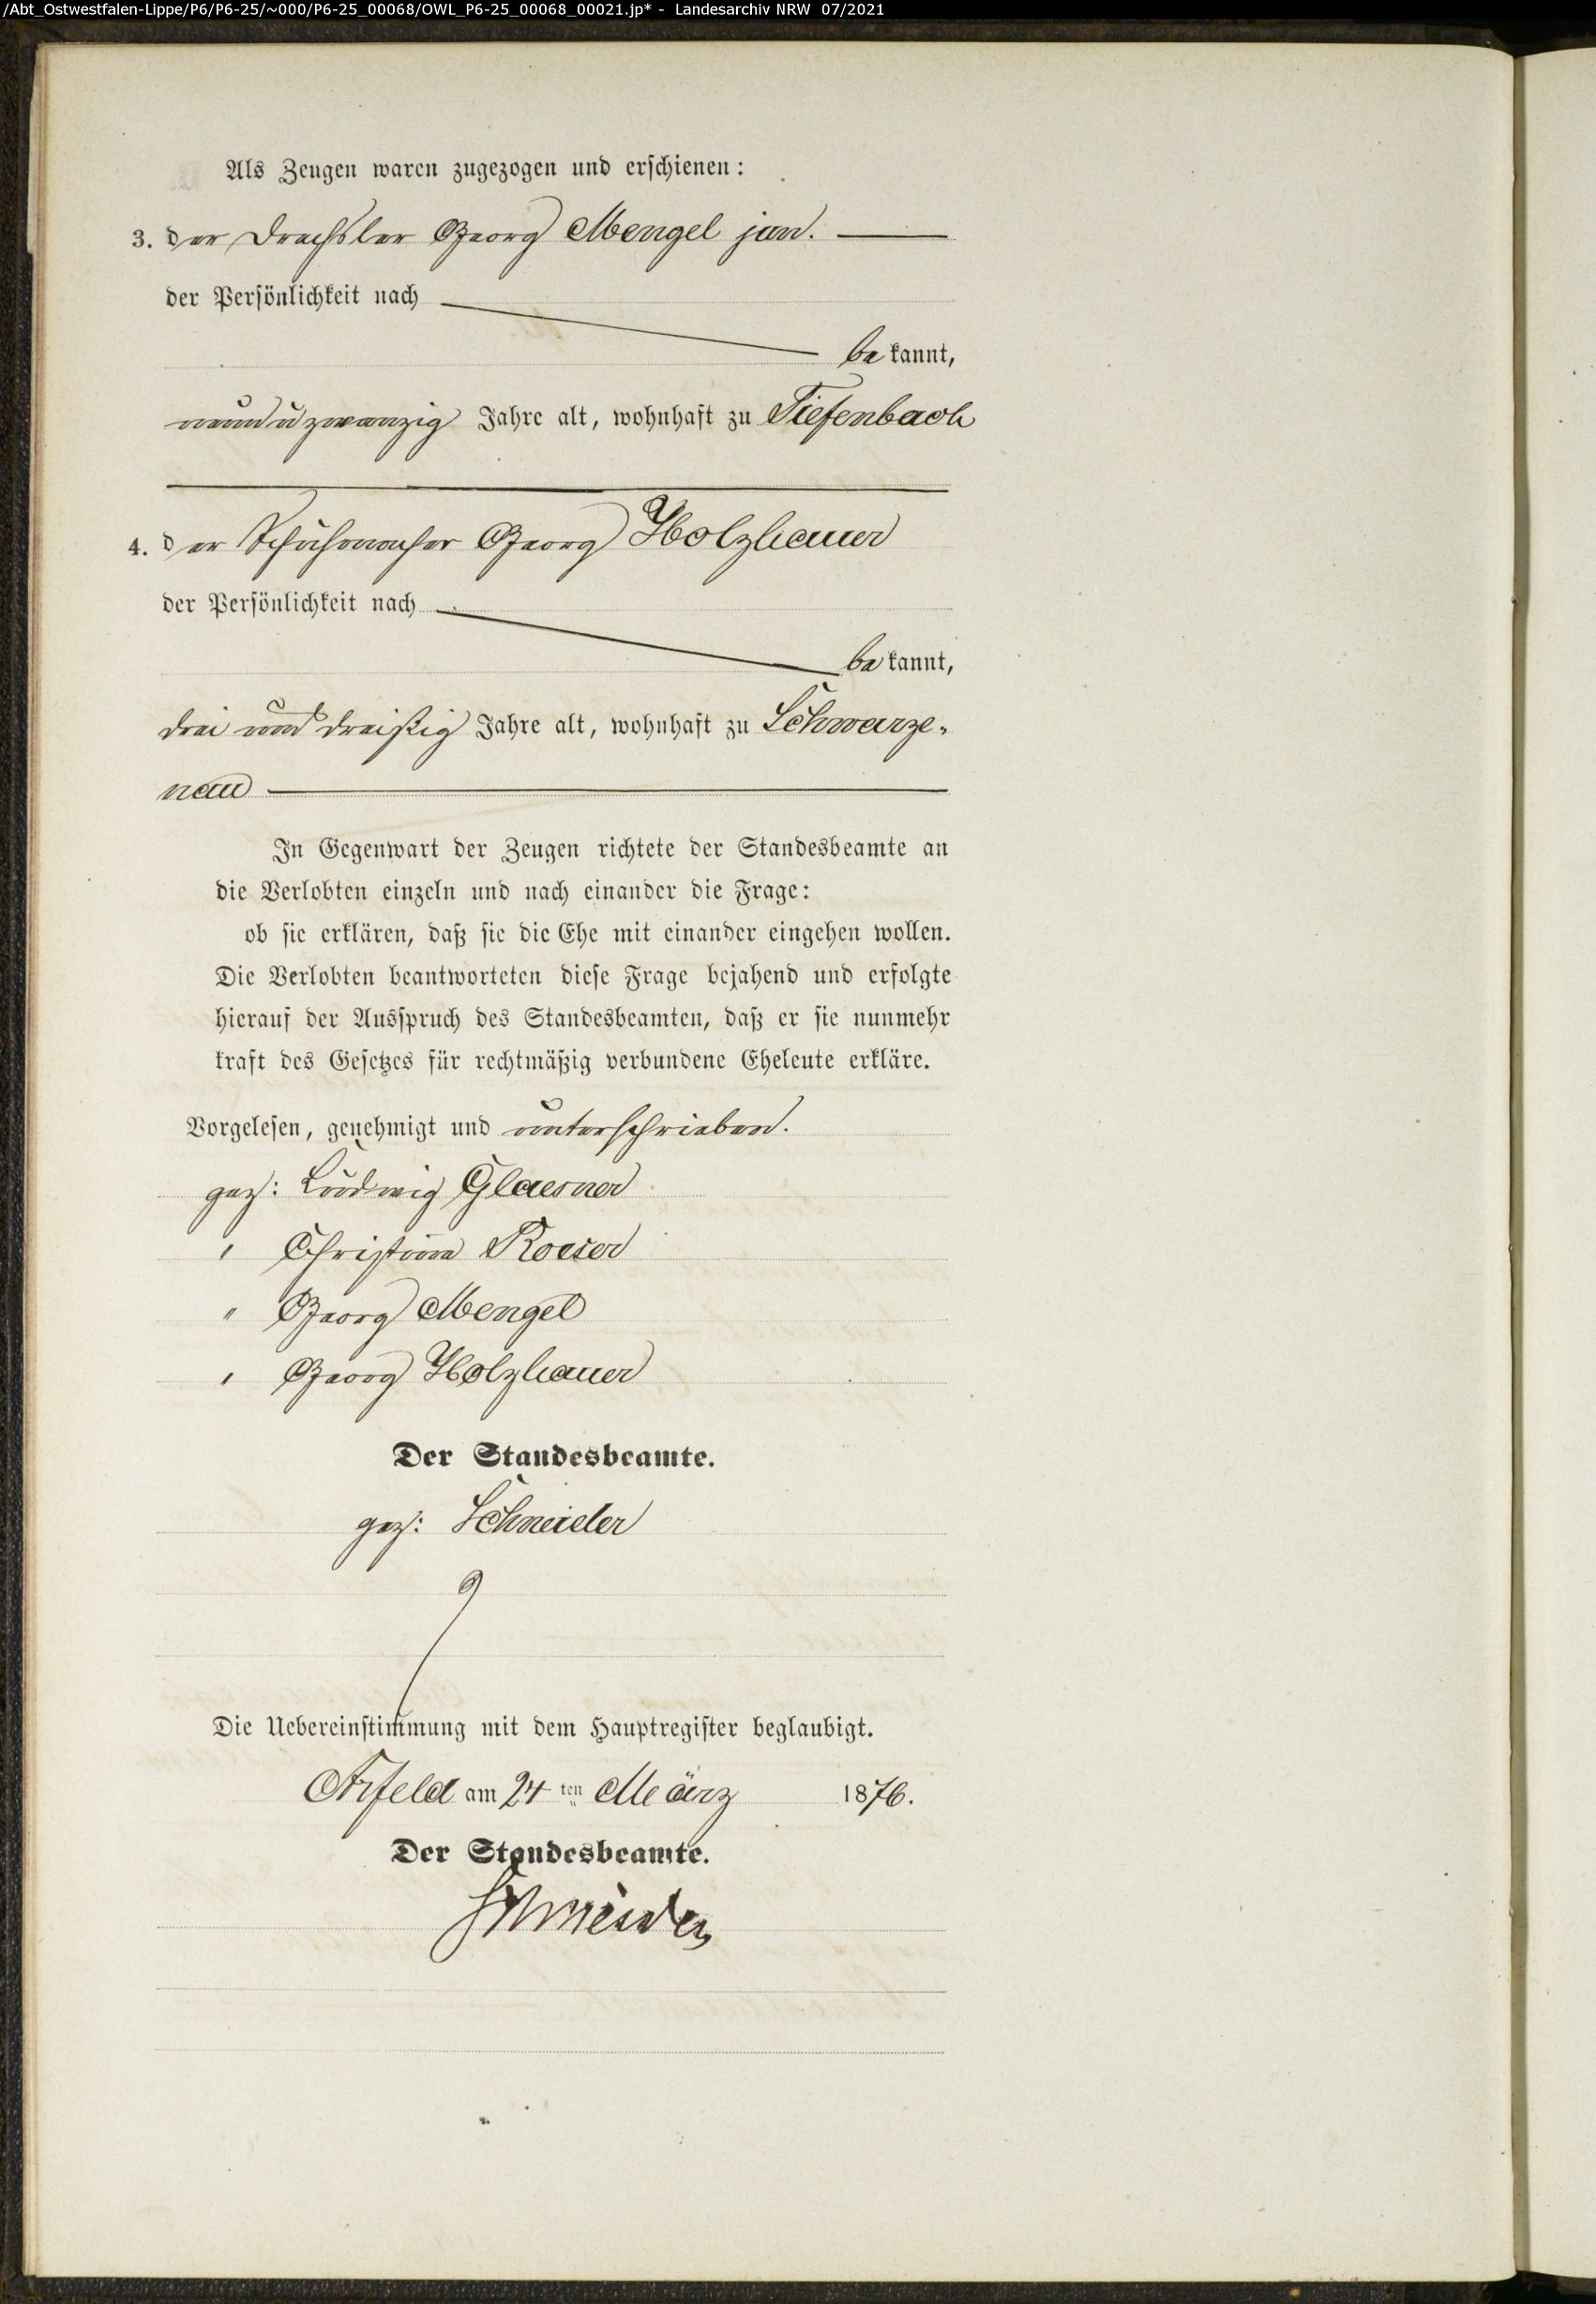 /Abt_Ostwestfalen-Lippe/P6/P6-25/~000/P6-25_00068/OWL_P6-25_00068_00021.jp* - Landesarchiv NRW 07/2021
Als Zeugen waren zugezogen und erschienen:
3. der Drechsler Georg Mengel jun.
der Persönlichkeit nach
bekannt,
neunundzwanzig Jahre alt, wohnhaft zu Tiefenbach
4. der Schuhmacher Georg Holzhauer
der Persönlichkeit nach
bekannt,
drei und dreißig Jahre alt, wohnhaft zu Schwarze-
nau
In Gegenwart der Zeugen richtete der Standesbeamte an
die Verlobten einzeln und nach einander die Frage:
ob sie erklären, daß sie die Ehe mit einander eingehen wollen.
Die Verlobten beantworteten diese Frage bejahend und erfolgte
hierauf der Ausspruch des Standesbeamten, daß er sie nunmehr
kraft des Gesetzes für rechtmäßig verbundene Eheleute erkläre.
Vorgelesen, genehmigt und unterschrieben.
gez: Ludwig Glaesner
" Christine Roeser
" Georg Mengel
" Georg Holzhauer
Der Standesbeamte.
gez: Schneider
Die Uebereinstimmung mit dem Hauptregister beglaubigt.
Arfeld am 24ten März 1876.
Der Standesbeamte.
Schneider